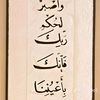 واصبر
لحكم
ربك
فإنك
بأعيننا